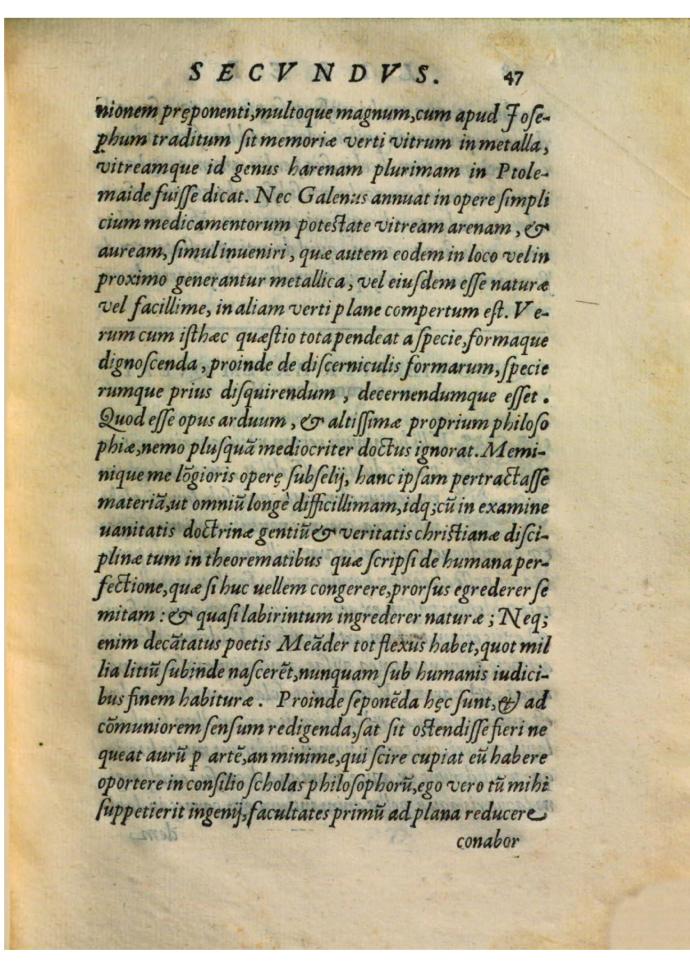 SECVNDVS. 47
nionem pręponenti,multoque magnum,cum apud Iose-
phum traditum sit memoriæ verti vitrum in metalla,
vitreamque id genus harenam plurimam in Ptole-
maide fuisse dicat. Nec Galenus annuat in opere simpli
cium medicamentorum potestate vitream arenam, &
auream, simul inueniri, quæ autem eodem in loco vel in
proximo generantur metallica, vel eiusdem esse naturæ
vel facillime, in aliam verti plane compertum est. Ve-
rum cum isthæc quæstio tota pendeat a specie, formaque
dignoscenda, proinde de discerniculis formarum, specie
rumque prius disquirendum, decernendumque esset.
Quod esse opus arduum, & altissimæ proprium philoso
phiæ, nemo plusquā mediocriter doctus ignorat. Memi-
nique me lōgioris operę subselij, hanc ipsam pertractasse
materiā, ut omniū longè difficillimam, idq; cū in examine
uanitatis doctrinæ gentiū & veritatis christianæ disci-
plinæ tum in theorematibus quæ scripsi de humana per-
fectione, quæ si huc uellem congerere, prorsus egrederer se
mitam: & quasi labirintum ingrederer naturæ; Neq;
enim decātatus poetis Meāder tot flexus habet, quot mil
lia litiū subinde nascerēt, nunquam sub humanis iudici-
bus finem habituræ. Proinde seponēda hęc sunt, & ad
cōmuniorem sensum redigenda, sat sit ostendisse fieri ne
queat aurū p artē, an minime, qui scire cupiat eū habere
oportere in consilio scholas philosophorū, ego vero tū mihi
suppetierit ingenij, facultates primū ad plana reducere
conabor